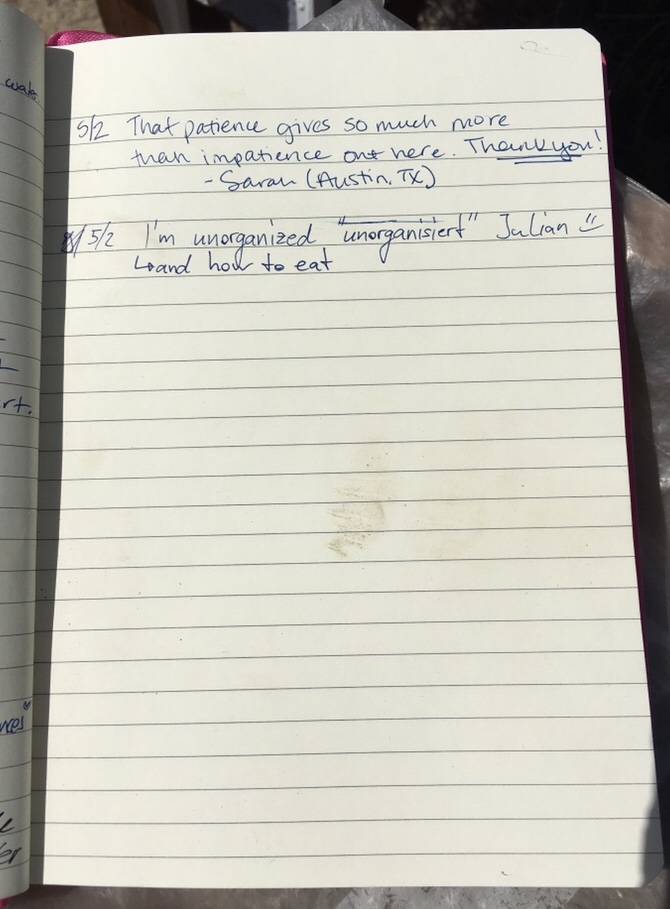 water
5/2 That patience gives so much more
than impatience out here. Thank you!
- Sarah (Austin, TX)
5/2 I'm unorganized "unorganisiert" Julian
↳and how to eat
rt.